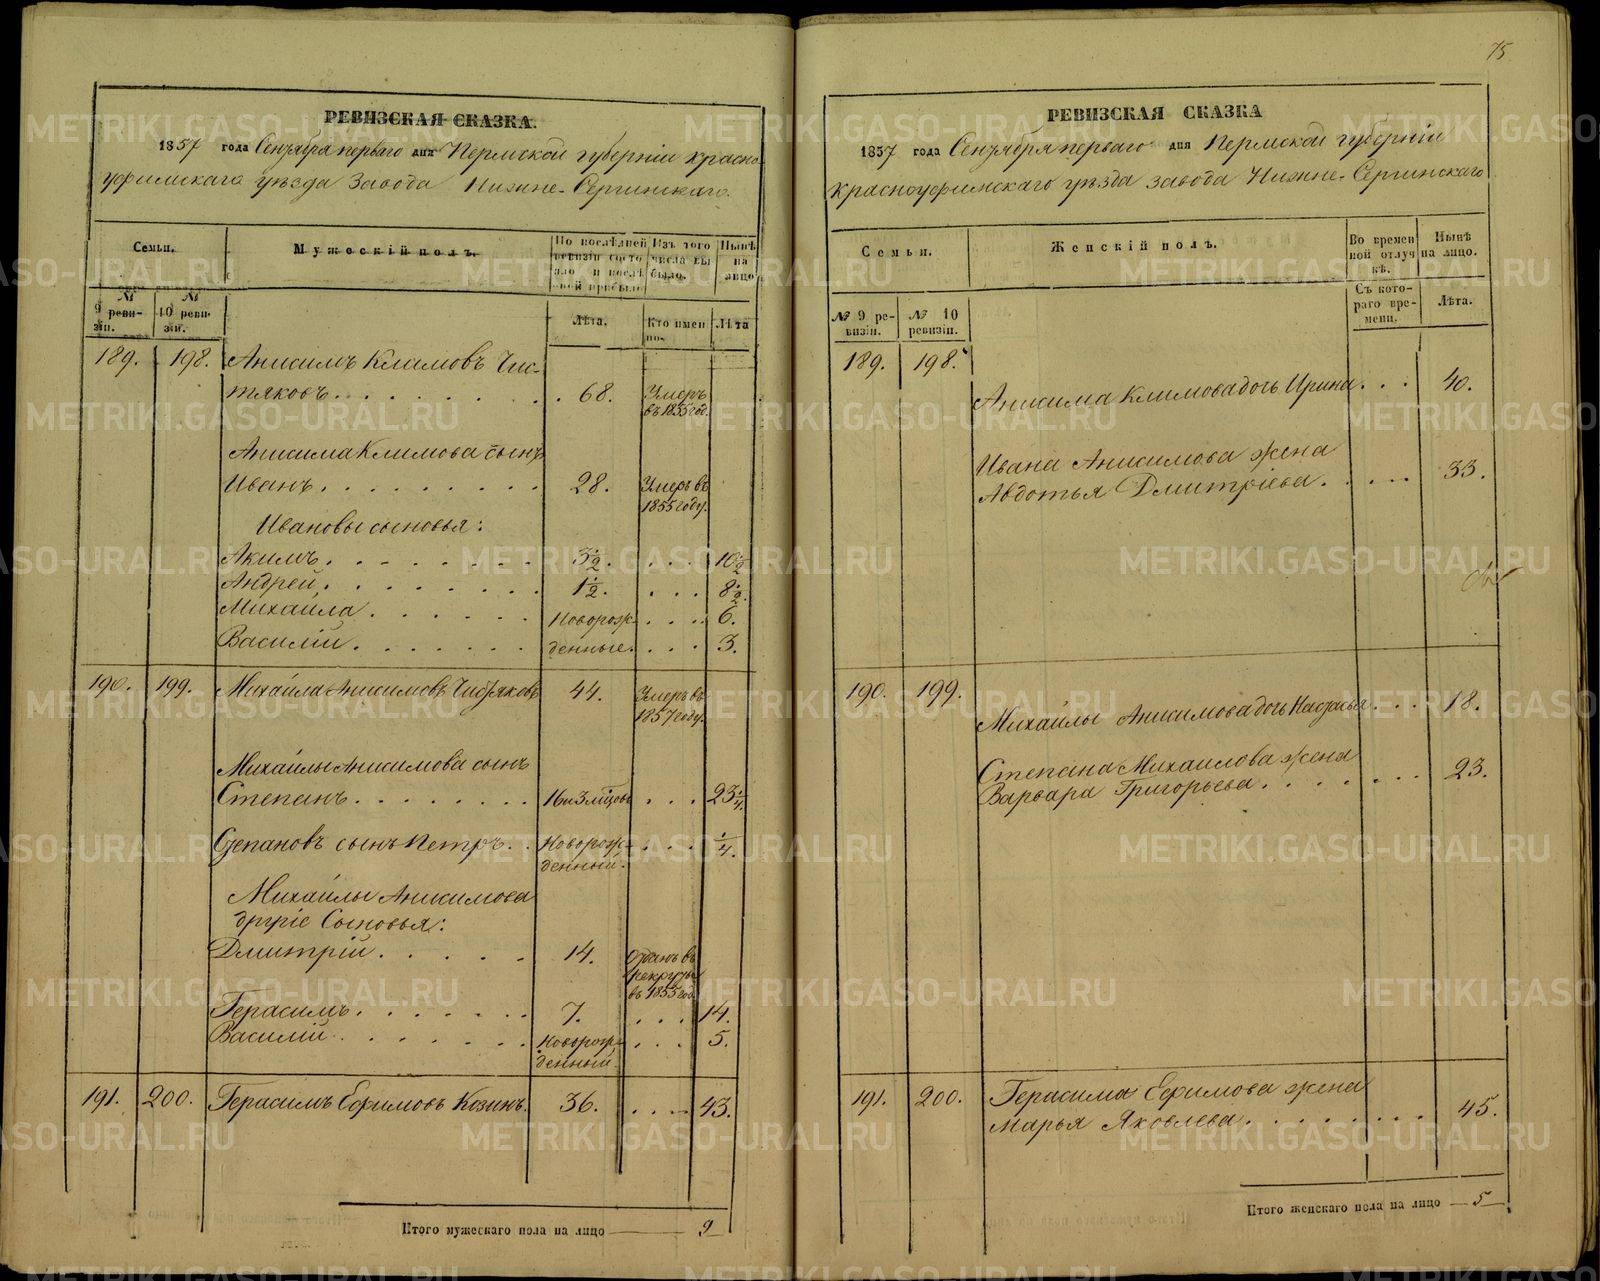 75
РЕВИЗСКАЯ СКАЗКА.
1857 года Сентября перваго дня Пермской губерніи Красно-
уфимскаго уѣзда Завода Нижне-Сергинскаго.
Семьи.
Мужескій полъ.
По послѣдней ревизіи состояло и послѣ оной прибыло
Изъ того числа выбыло.
Нынѣ на лицо
№ 9 ревизіи.
№ 10 ревизіи.
Лѣта.
Кто именно.
Лѣта
189. 198. Анисимъ Климовъ Чис-
тяковъ . . . 68. Умеръ въ 1855 год.
Анисима Климова сынъ
Иванъ . . . 28. Умеръ въ 1855 году.
Ивановы сыновья:
Акимъ . . . 3½. . . . 10½
Андрей . . . 1½. . . . 8½.
Михайла . . . Новорож- . . . 6.
Василій . . . денные. . . . 3.
190. 199. Михайла Анисимовъ Чистяковъ 44. Умеръ въ 1857 году.
Михайлы Анисимова сынъ
Степанъ . . . 16 и 3 мѣсцов . . . 23¼.
Степановъ сынъ Петръ . . Новорож-денный. . . . ¼.
Михайлы Анисимова
другіе Сыновья:
Дмитрій . . . 14. Отданъ въ рекруты въ 1855 год.
Герасимъ . . . 7. . . . 14.
Василій . . . Новорож-денный. . . . 5.
191. 200. Герасимъ Ефимовъ Козинъ. 36. . . . 43.
Итого мужескаго пола на лицо 9
РЕВИЗСКАЯ СКАЗКА
1857 года Сентября перваго дня Пермской губерніи
Красноуфимскаго уѣзда завода Нижне-Сергинскаго
Семьи.
Женскій полъ.
Во временной отлучкѣ.
Нынѣ на лицо.
№ 9 ревизіи.
№ 10 ревизіи.
Съ котораго времени.
Лѣта.
189. 198.
Анисима Климова дочь Ирина . . . 40.
Ивана Анисимова жена
Авдотья Дмитріева . . . 33.
190. 199.
Михайлы Анисимова дочь Настасья . . . 18.
Степана Михайлова жена
Варвара Григорьева . . . 23.
191. 200. Герасима Ефимова жена
Марья Яковлева . . . 45.
Итого женскаго пола на лицо 5
METRIKI.GASO-URAL.RU